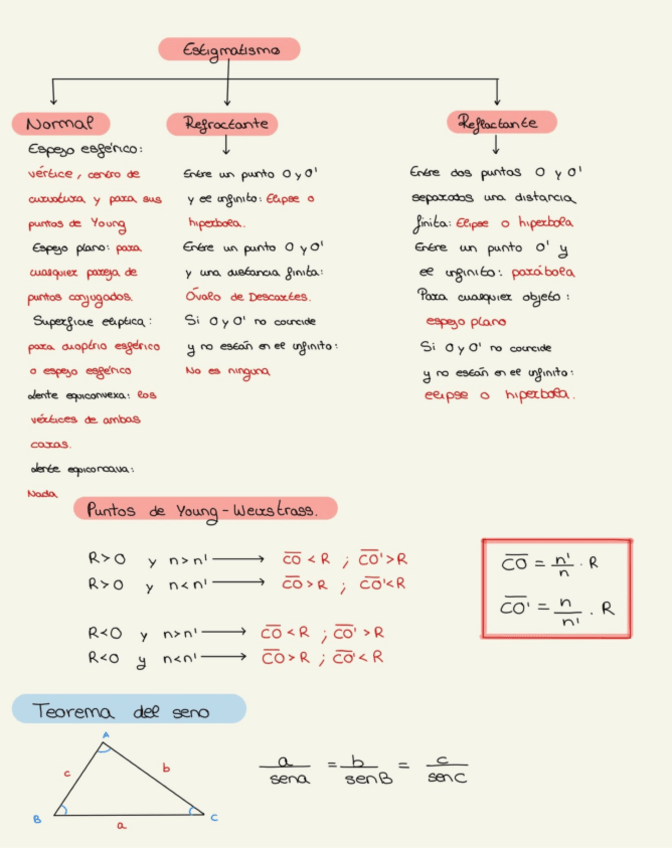 Estigmatismo
Normal
Espejo esférico:
vértice, centro de
curvatura y para sus
puntos de Young
Espejo plano: para
cualquier pareja de
puntos conjugados.
Superficie elíptica:
para dioptrio esférico
o espejo esférico
Lente equiconvexa: los
vértices de ambas
caras.
Lente equiconcava:
Nada
Refractante
Entre un punto O y O'
y el infinito: Elipse o
hiperbola.
Entre un punto O y O'
y una distancia finita:
Óvalo de Descartes.
Si O y O' no coincide
y no están en el infinito:
No es ninguna
Reflactante
Entre dos puntos O y O'
separados una distancia
finita: Elipse o hiperbola
Entre un punto O' y
el infinito: parábola
Para cualquier objeto:
espejo plano
Si O y O' no coincide
y no están en el infinito:
elipse o hiperbola.
Puntos de Young-Weirstrass.
R>0 y n>n' → C̅O̅ < R ; C̅O̅' > R
R>0 y n<n' → C̅O̅ > R ; C̅O̅' < R
R<0 y n>n' → C̅O̅ < R ; C̅O̅' > R
R<0 y n<n' → C̅O̅ > R ; C̅O̅' < R
C̅O̅ = n'/n · R
C̅O̅' = n/n' · R
Teorema del seno
A
c b
B C
a
a/sena = b/senB = c/senC